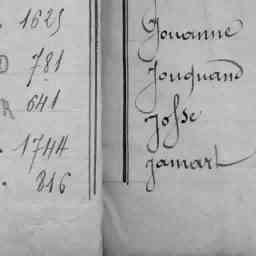 1625 Jouanne
D 781 Jouquand
R 641 Josse
1744 Jamart
816